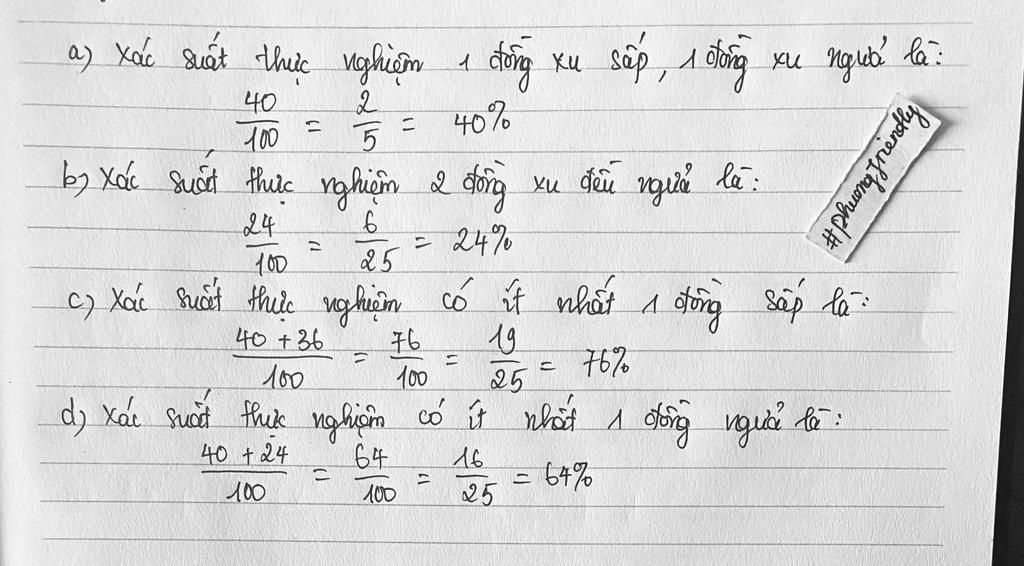 a) Xác suất thực nghiệm 1 đồng xu sấp, 1 đồng xu ngửa là:
40/100 = 2/5 = 40%
b) Xác suất thực nghiệm 2 đồng xu đều ngửa là:
24/100 = 6/25 = 24%
c) Xác suất thực nghiệm có ít nhất 1 đồng sấp là:
40 + 36/100 = 76/100 = 19/25 = 76%
d) Xác suất thực nghiệm có ít nhất 1 đồng ngửa là:
40 + 24/100 = 64/100 = 16/25 = 64%
#phuongfriendly